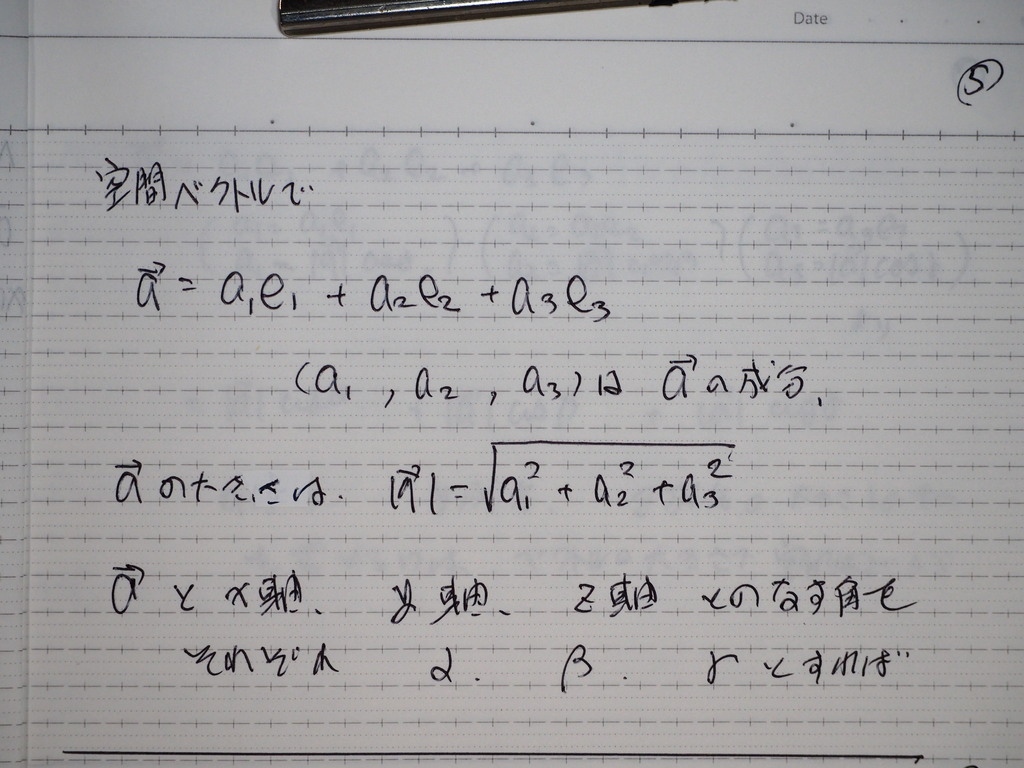 Date
⑤
空間ベクトルで
a⃗ = a₁e₁ + a₂e₂ + a₃e₃
(a₁ , a₂ , a₃) は a⃗ の成分、
a⃗ の大きさは、 |a⃗| = √(a₁² + a₂² + a₃²)
a⃗ と x軸、 y軸、 z軸 とのなす角を
それぞれ α、 β、 γ とすれば